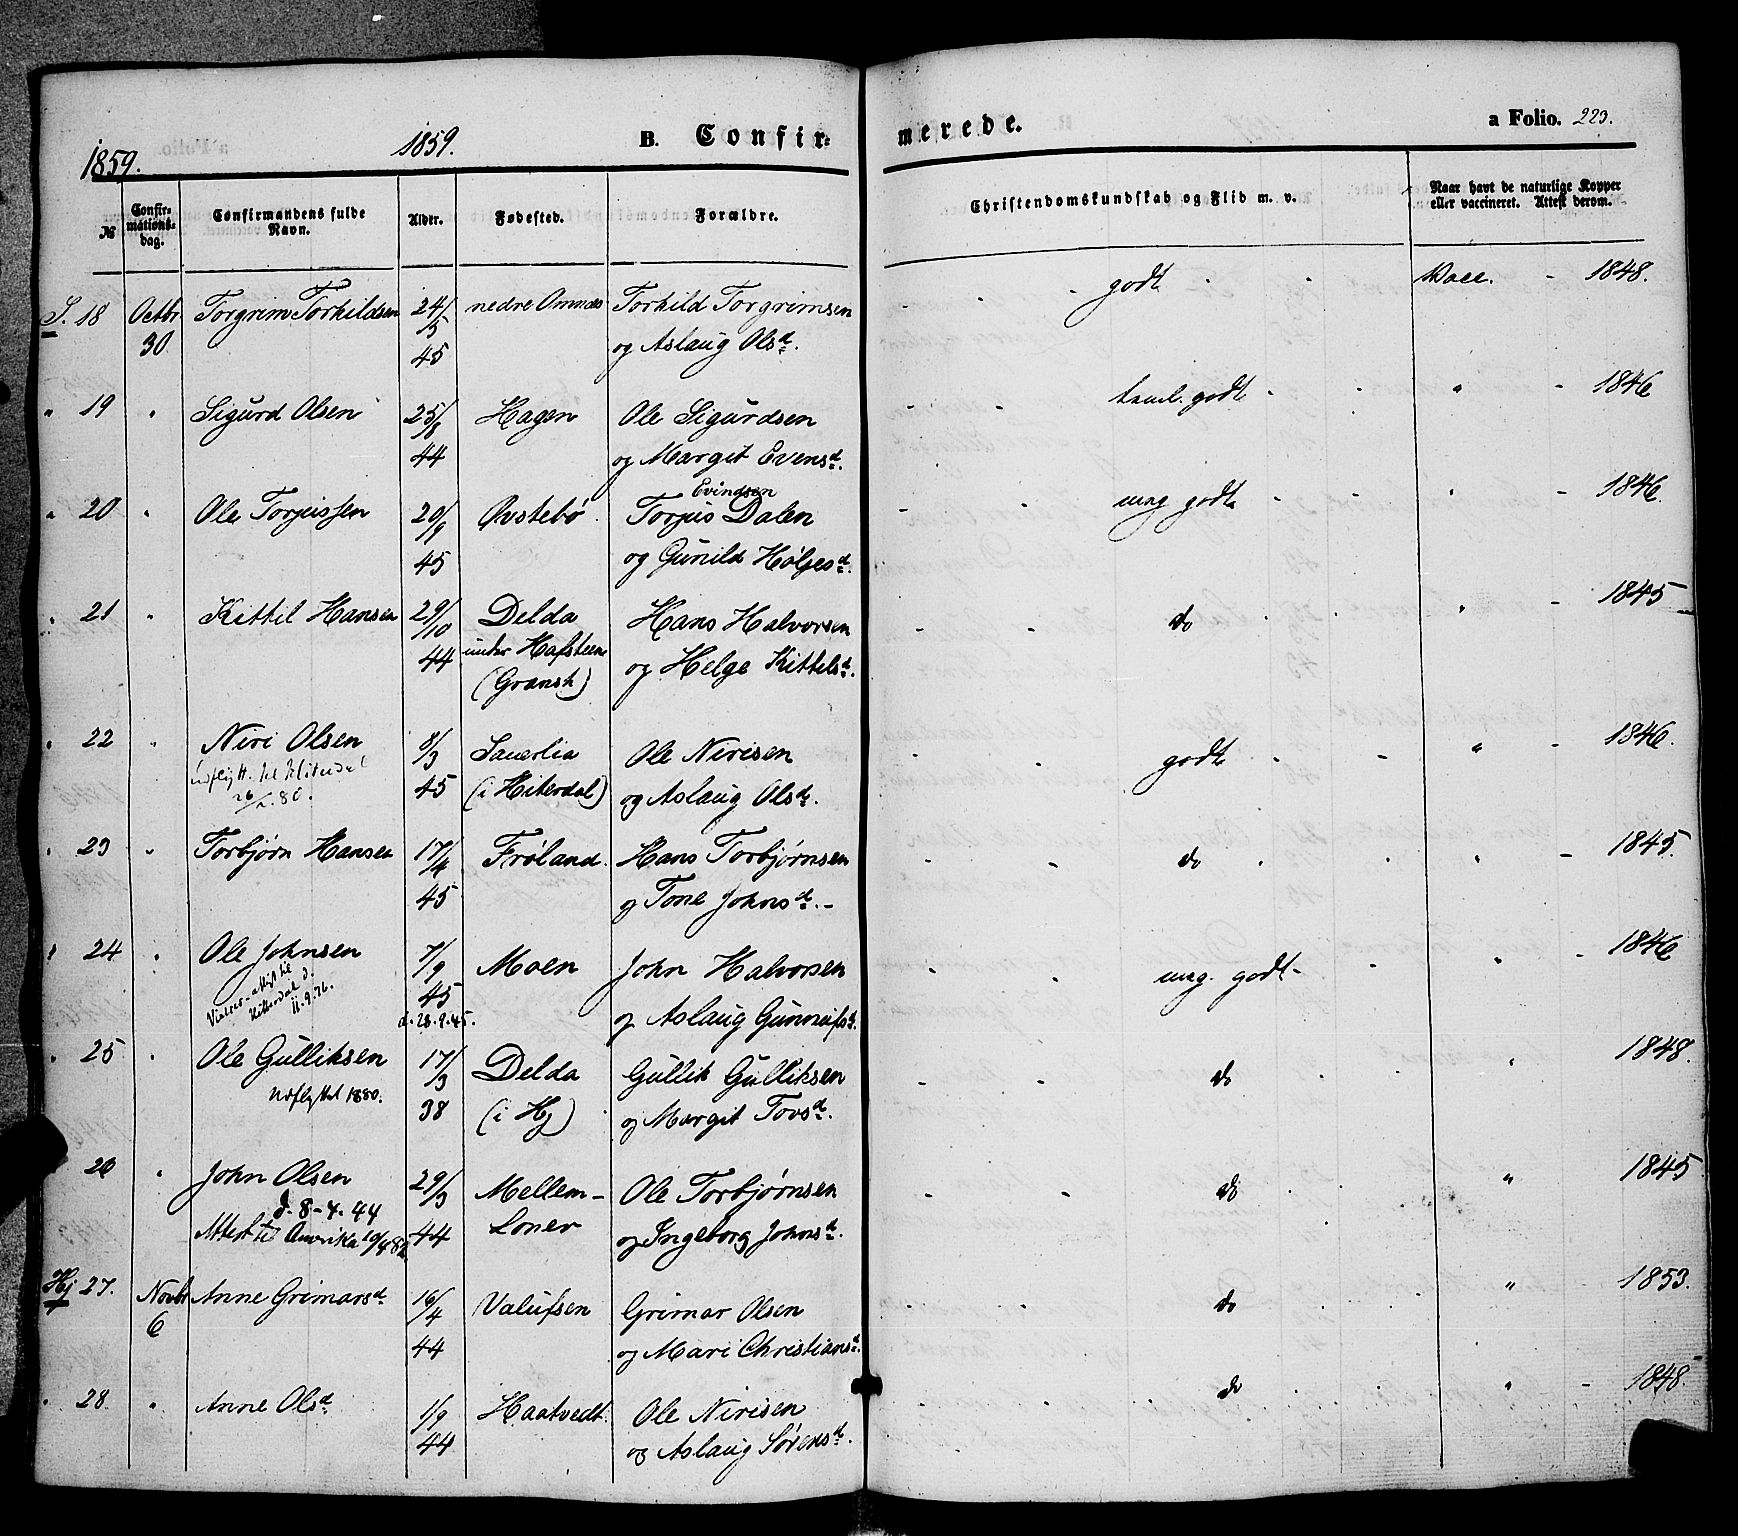 1859.
1859.
B. Confir-
merede.
a Folio. 223.
№
Confir-
mations-
dag.
Confirmandens fulde
Navn.
Alder.
Fødested.
Forældre.
Christendomskundskab og Flid m. v.
Naar havt de naturlige Kopper
eller vaccineret. Attest derom.
S. 18 Octbr 30 Torgrim Torkildsen 24/5 45 nedre Omnæs Torkild Torgrimsen
og Aslaug Olsd. godt Vacc. - 1848.
" 19 " Sigurd Olsen 25/8 44 Hagen Ole Sigurdsen
og Margit Evensd. teml. godt " - 1846
" 20 " Ole Torjussen 20/9 45 Øvstebö Torjus Evindsen Dalen
og Gunild Holjesd. meg godt " - 1846.
" 21 " Kittil Hansen 29/10 44 Delda
under Hafsteen
(Gransh) Hans Halvorsen
og Helge Kittelsd. do " - 1845
" 22 " Niri Olsen
udflytt. til Hiterdal
26/ 80. 8/3 45 Sauerlia
(i Hiterdal) Ole Nirisen
og Aslaug Olsd. godt " - 1846.
" 23 " Torbjørn Hansen 17/4 45 Frøland. Hans Torbjørnsen
og Tone Johnsd. - do " - 1845.
" 24 " Ole Johnsen
attest til
Hitterdal d.
11.9.76. 7/9 45
d. 28.9.45. Moen John Halvorsen
og Aslaug Gunneifsd. meg. godt - " - 1846
" 25 " Ole Gulliksen
udflyttet 1880. 17/3 38 Delda
(i Hj) Gullik Gulliksen
og Margit Tovsd. do " 1848.
26 " John Olsen
d. 8-4.44
Attest til Amerika 19/4 82 29/3 44 Mellem-
Loner Ole Torbjørnsen
og Ingeborg Johnsd. do " 1845
Hj 27. Novbr 6 Anne Grimarsd. 16/4 44 Valufsen Grimar Olsen
og Mari Christiansd. do " 1853.
" 28 " Anne Olsd 1/9 44 Haatvedt. Ole Nirisen
og Aslaug Sørensd. do " - 1848.